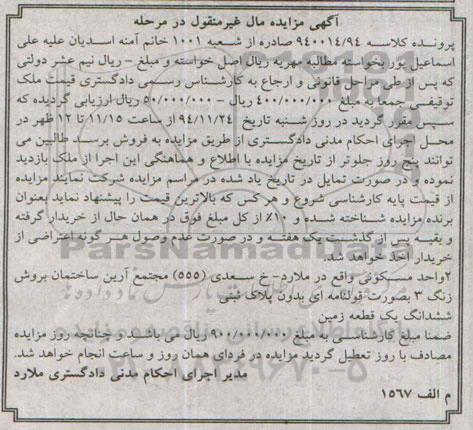 آگهی مزایده مال غیرمنقول در مرحله
پرونده کلاسه ۹۴۰۰۱۴/۹۴ صادره از شعبه ۱۰۰۱ خانم آمنه اسدیان علیه علی
اسماعیل پور بخواسته مطالبه مهریه ریال اصل خواسته و مبلغ - ریال نیم عشر دولتی
که پس از طی مراحل قانونی و ارجاع به کارشناس رسمی دادگستری قیمت ملک
توقیفی جمعا به مبلغ ۴۰۰/۰۰۰/۰۰۰ ریال - ۵۰/۰۰۰/۰۰۰ ریال ارزیابی گردیده که
سپس مقرر گردید در روز شنبه تاریخ ۹۴/۱۱/۲۴ از ساعت ۱۱/۱۵ تا ۱۲ ظهر در
محل اجرای احکام مدنی دادگستری از طریق مزایده به فروش برسد طالبین می
توانند پنج روز جلوتر از تاریخ مزایده با اطلاع و هماهنگی این اجرا از ملک بازدید
نموده و در صورت تمایل در تاریخ یاد شده در مراسم مزایده شرکت نمایند مزایده
از قیمت پایه کارشناسی شروع و هر کس که بالاترین قیمت را پیشنهاد نماید بعنوان
برنده مزایده شناخته شده و ۱۰٪ از کل مبلغ فوق در همان حال از خریدار گرفته
و بقیه پس از گذشت یک هفته و در صورت عدم وصول هر گونه اعتراضی از
خریدار اخذ خواهد شد.
۲واحد مسکونی واقع در ملارد- خ سعدی (۵۵۵) مجتمع آرین ساختمان بروش
زنگ ۳ بصورت قولنامه ای بدون پلاک ثبتی
ششدانگ یک قطعه زمین
ضمنا مبلغ کارشناسی به مبلغ ۹۰۰/۰۰۰/۰۰۰ ریال می باشد و چنانچه روز مزایده
مصادف با روز تعطیل گردید مزایده در فردای همان روز و ساعت انجام خواهد شد.
مدیر اجرای احکام مدنی دادگستری ملارد
م الف ۱۵۶۷
ParsNamadData